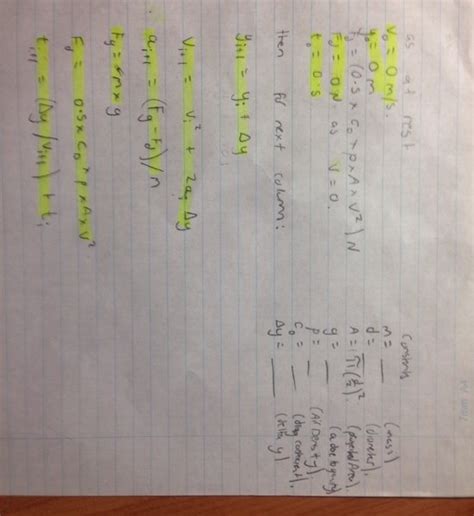 as at rest
v₀ = 0 m/s.
y₀ = 0 m
Fd = (0.5 × C_D × ρ × A × v²) N
Fd = 0 N as v = 0.
t₀ = 0.s
then for next column:
yi+1 = yi + Δy
vi+1 = vi² + 2ai Δy
∴ ai+1 = (Fg - Fd)/m
Fg = m × g
Fd = 0.5 × C_D × ρ × A × v²
ti+1 = (Δy / vi+1) + ti
Constants
m = __ (mass)
d = __ (diameter).
A = π(d/2)². (projected Area).
g = __ (a due to gravity)
ρ = __ (Air Density)
C_D = __ (drag coefficient).
Δy = __ (delta y)